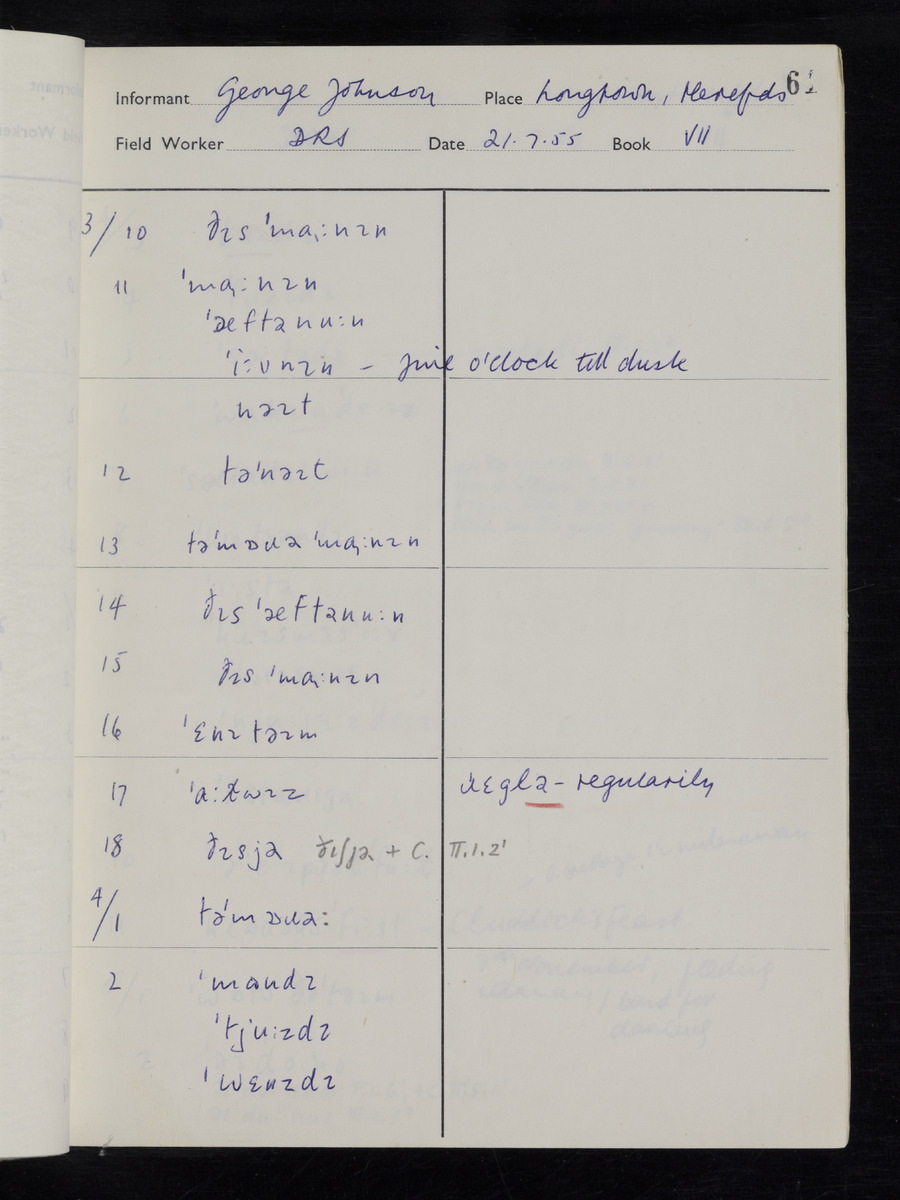 61
Informant George Johnson Place Longtown, Herefds
Field Worker DRS Date 21.7.55 Book VII
3/10 ðɪs ˈmɑ̨:nɪn
11 ˈmɑ̨:nɪn
ˈæftənu:n
ˈi:vnɪn – five o'clock till dusk
nəɪt
12 təˈnəɪt
13 təˈmɒɹə ˈmɑ̨:nɪn
14 ðɪs ˈæftənu:n
15 ðɪs ˈmɑ̨:nɪn
16 ˈɛnɪtəɪm
17 ɹɛglə – regularily
18 ðɪsjə ðɪʃjə + C. II.1.2'
4/1 təˈmɒɹə:
2 ˈmʌndɪ
ˈtju:zdɪ
ˈwɛnzdɪ